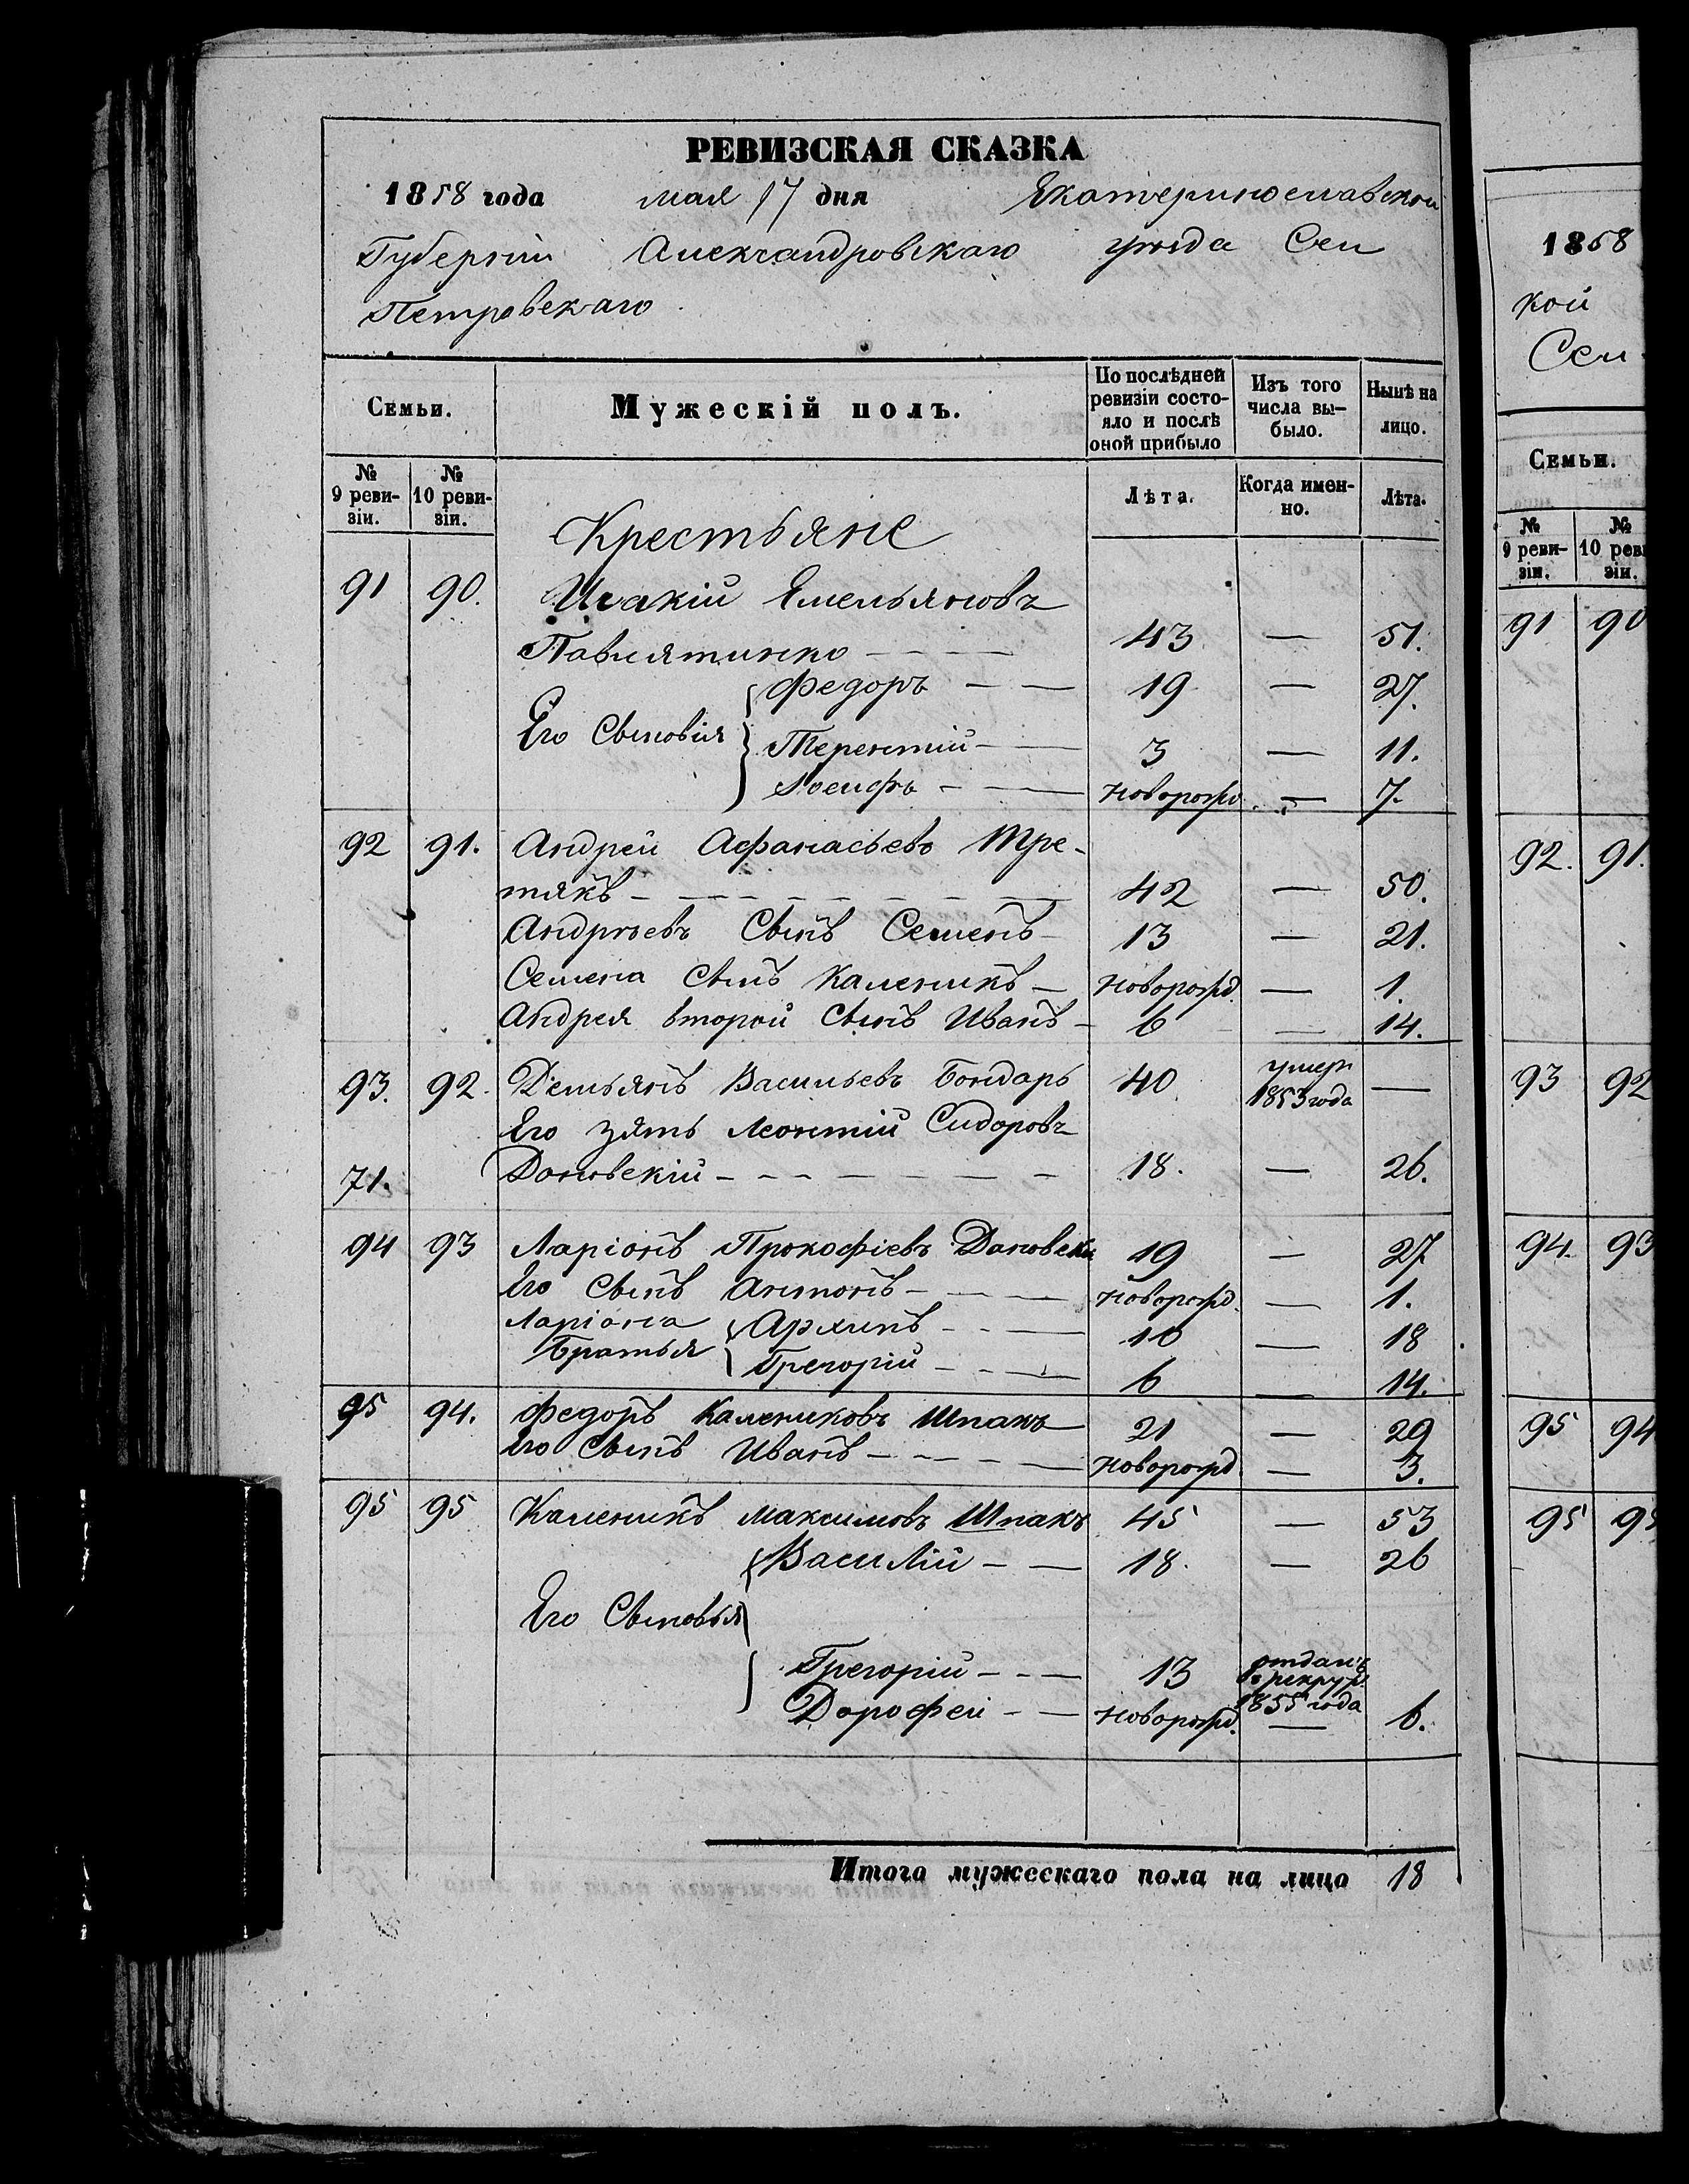 РЕВИЗСКАЯ СКАЗКА
1858 года мая 17 дня Екатеринославской
Губерніи Александровскаго уѣзда Сел
Петровскаго
Семьи. Мужескій полъ. По послѣдней ревизіи состояло и послѣ оной прибыло Изъ того числа выбыло. Нынѣ на лицо.
№ 9 ревизіи. № 10 ревизіи. Лѣта. Когда именно. Лѣта.
Крестьяне
91 90. Исакій Емельяновъ
Павлятинко — 43 — 51.
Его Сыновія Федоръ — 19 — 27.
Терентій — 3 — 11.
Іосифъ — новорожд. — 7.
92 91. Андрей Афанасьевъ Тре-
тякъ — 42 — 50.
Андрѣевъ Сынъ Семенъ — 13 — 21.
Семена Сынъ Каленикъ — новорожд. — 1.
Андрея второй Сынъ Иванъ — 6 — 14.
93. 92. Демьянъ Васильевъ Бондарь 40 умеръ 1853 года —
Его зять Леонтій Сидоровъ
71. Дановскій — 18. — 26.
94 93 Ларіонъ Прокофіевъ Дановскій 19 — 27
Его Сынъ Антонъ — новорожд. — 1.
Ларіона Братья Архипъ — 10 — 18
Григорій — 6 — 14.
95 94. Федоръ Калениковъ Шпакъ 21 — 29
Его Сынъ Иванъ — новорожд. — 3.
95 95 Каленикъ Максимовъ Шпакъ 45 — 53
Его Сыновья Василій — 18. — 26
Григорій — 13 отданъ в рекрут. 1855 года
Дорофей — новорожд. — 6.
Итого мужескаго пола на лицо 18
1858
кой
Сел
Семьи.
№ 9 ревизіи. № 10 реви зіи.
91 90
92. 91.
93 92
94. 93
95 94
95 95